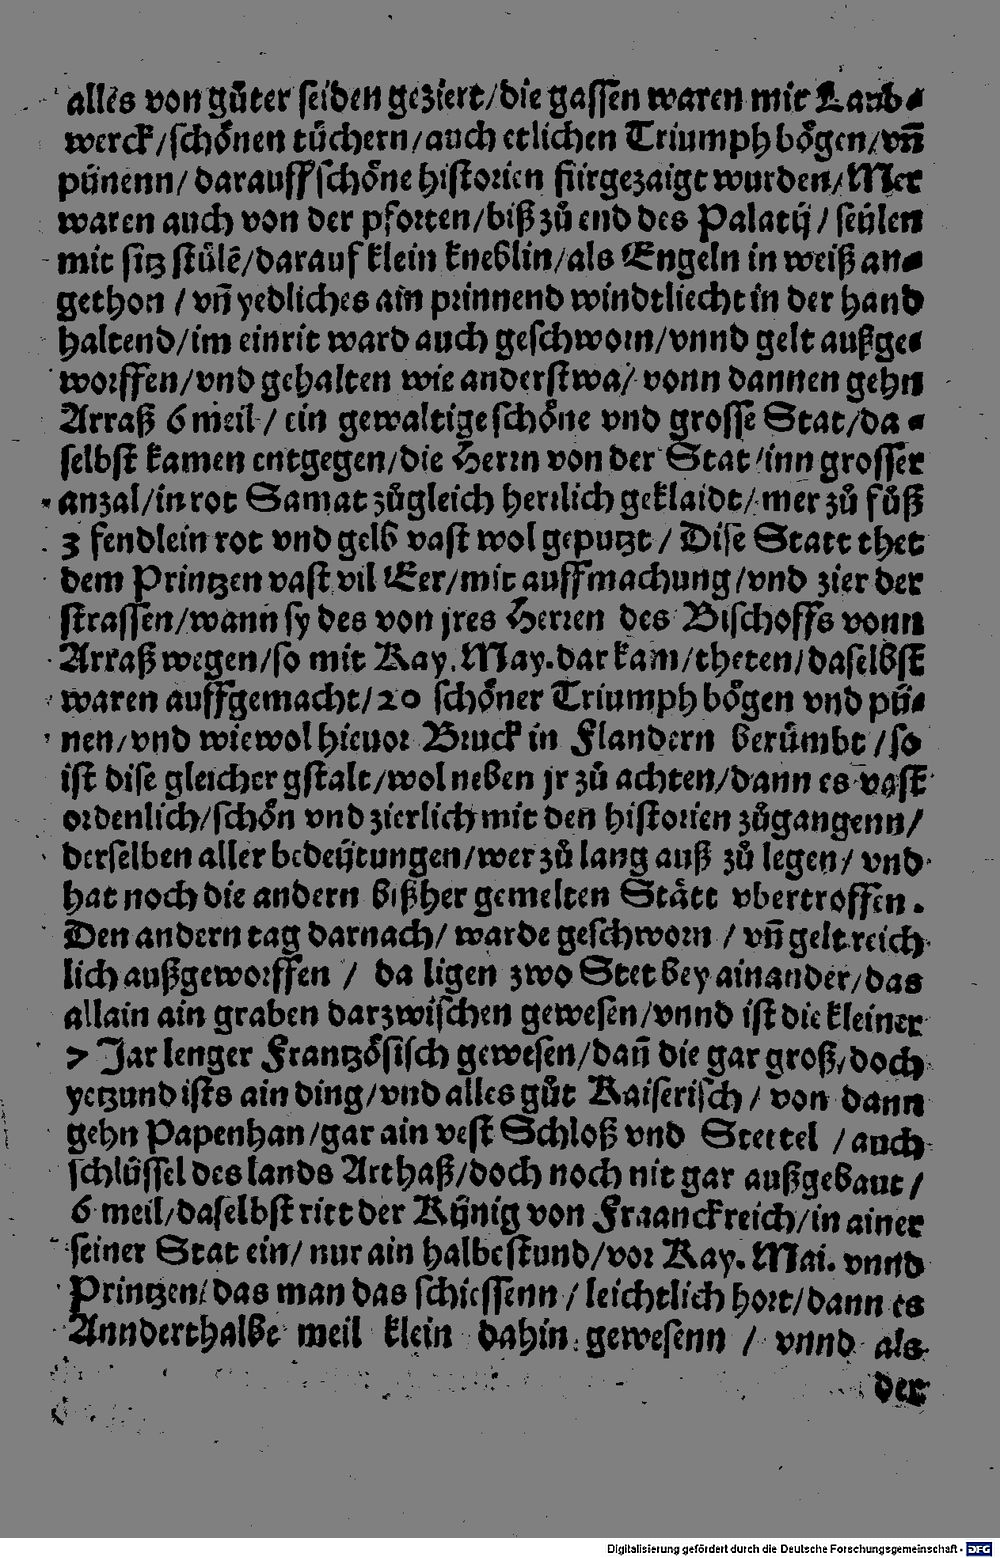 allẽs von gůter seiden geziert/die gassen waren mit Laub-
werck/schönen tüchern/auch etlichen Triumph bögen/vñ
pünenn/ darauff schöne historien fürgezaigt wurden/Mer
waren auch von der pforten/biß zů end des Palatij/ seülen
mit sitz stülẽ/darauf klein kneblin/als Engeln in weiß an-
gethon / vñ yedliches ain prinnend windtliecht in der hand
haltend/im einrit ward auch geschworn/vnnd gelt außge-
worffen/vnd gehalten wie anderstwa/ vonn dannen gehn
Arraß 6 meil/ ein gewaltige schöne vnd grosse Stat/da-
selbst kamen entgegen/die Herrn von der Stat/inn grosser
anzal/in rot Samat zůgleich herrlich geklaidt/ mer zů fůß
3 fendlein rot vnd gelb vast wol geputzt / Dise Statt thet
dem Printzen vast vil Eer/mit auffmachung/vnd zier der
strassen/wann sy des von jres Herren des Bischoffs vonn
Arraß wegen/so mit Kay. May. dar kam/theten/daselbst
waren auffgemacht/20 schöner Triumph bögen vnd pü-
nen/vnd wiewol hieuor Bruck in Flandern berümbt /so
ist dise gleicher gstalt/wol neben jr zů achten/dann es vast
ordenlich/schön vnd zierlich mit den historien zůgangenn/
derselben aller bedeütungen/wer zů lang auß zů legen/ vnd
hat noch die andern bißher gemelten Stätt vbertroffen.
Den andern tag darnach/ warde geschworn / vñ gelt reich
lich außgeworffen / da ligen zwo Stet bey ainander/das
allain ain graben darzwischen gewesen/vnnd ist die kleiner
7 Jar lenger Frantzösisch gewesen/dañ die gar groß/doch
yetzund ists ain ding/vnd alles gůt Kaiserisch/ von dann
gehn Papenhan/gar ain vest Schloß vnd Stettel /auch
schlüssel des lands Arthaß/doch noch nit gar außgebaut/
6 meil/daselbst ritt der Künig von Fraanckreich/in ainer
seiner Stat ein/ nur ain halbe stund/vor Kay. Mai. vnnd
Printzen/das man das schiessenn / leichtlich hort/dann es
Annderthalbe meil klein dahin gewesenn / vnnd als
der
Digitalisierung gefördert durch die Deutsche Forschungsgemeinschaft - DFG